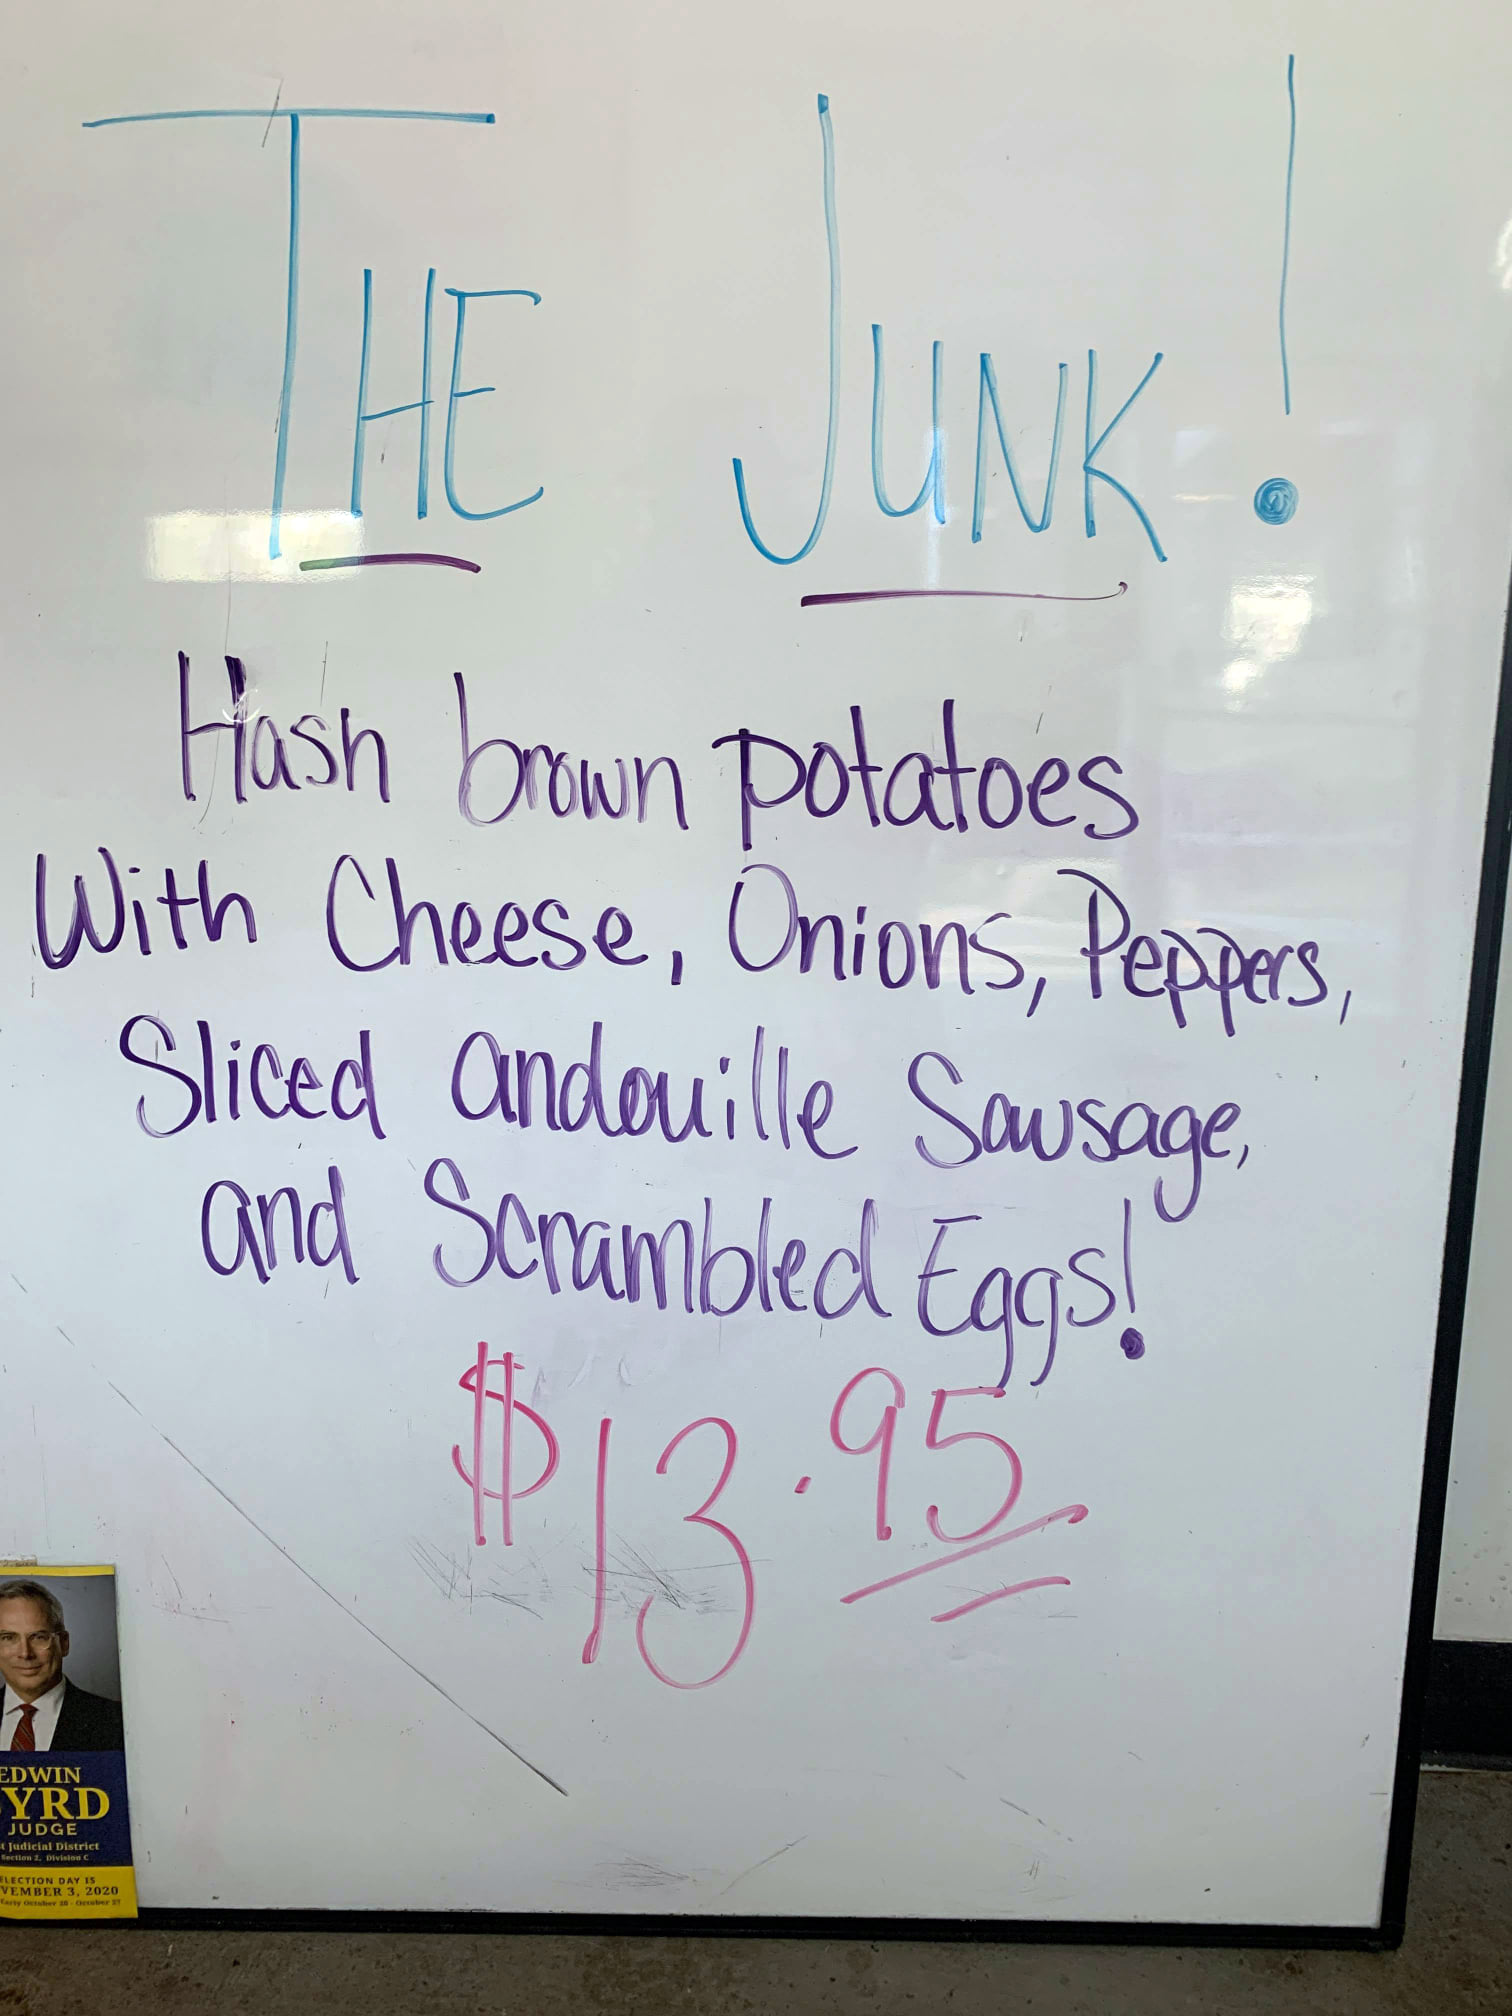 THE JUNK!
Hash brown potatoes
With Cheese, Onions, Peppers,
Sliced andouille Sausage,
and Scrambled Eggs!
$13.95
EDWIN
YRD
JUDGE
t Judicial District
Section 2, Division C
ELECTION DAY IS
VEMBER 3, 2020
Early October 20 - October 27